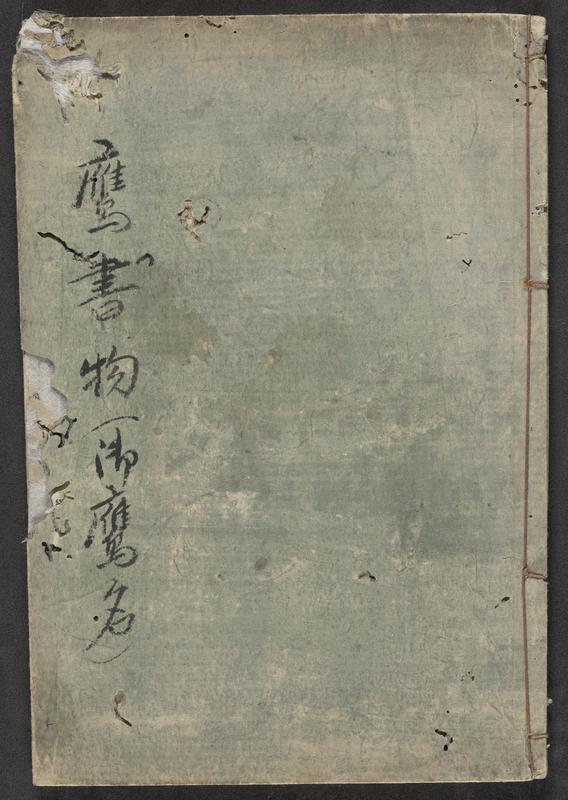 鷹書物（御鷹名）